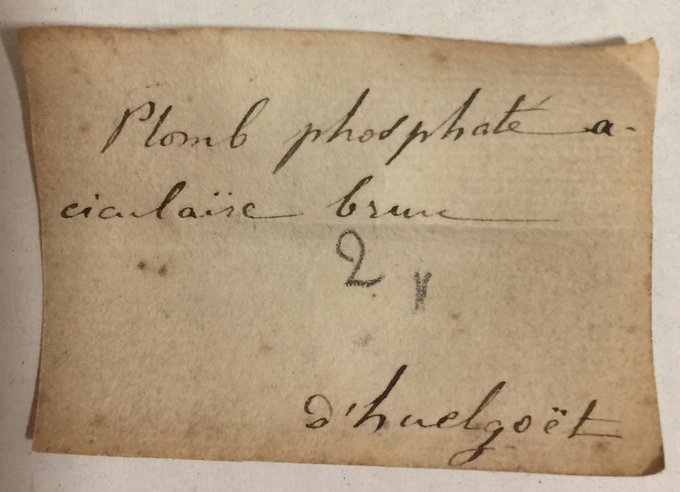 Plomb phosphaté a-
ciculaïre brun
2
d'huelgoët